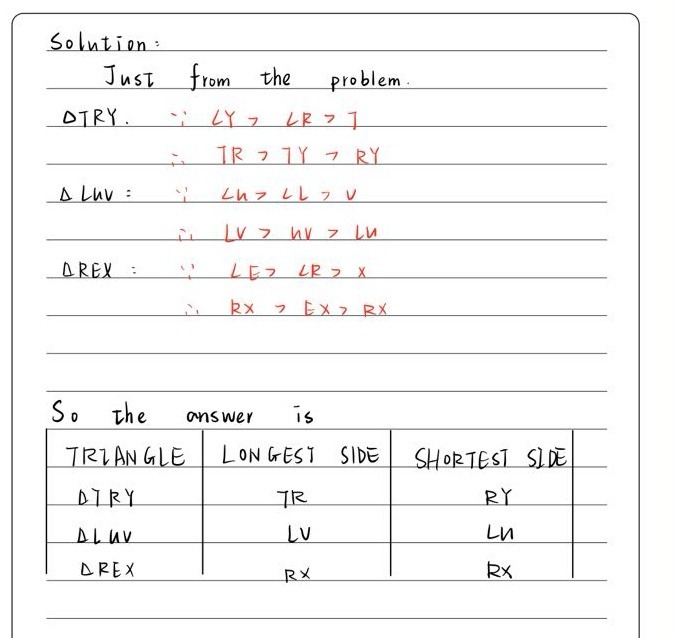 Solution:
Just from the problem.
△TRY. ∵ ∠Y > ∠R > T
∴ TR > TY > RY
△LUV: ∵ ∠U > ∠L > V
∴ LV > UV > LU
△REX: ∵ ∠E > ∠R > X
∴ RX > EX > RX
So the answer is
TRIANGLE LONGEST SIDE SHORTEST SIDE
△TRY TR RY
△LUV LV LU
△REX RX RX